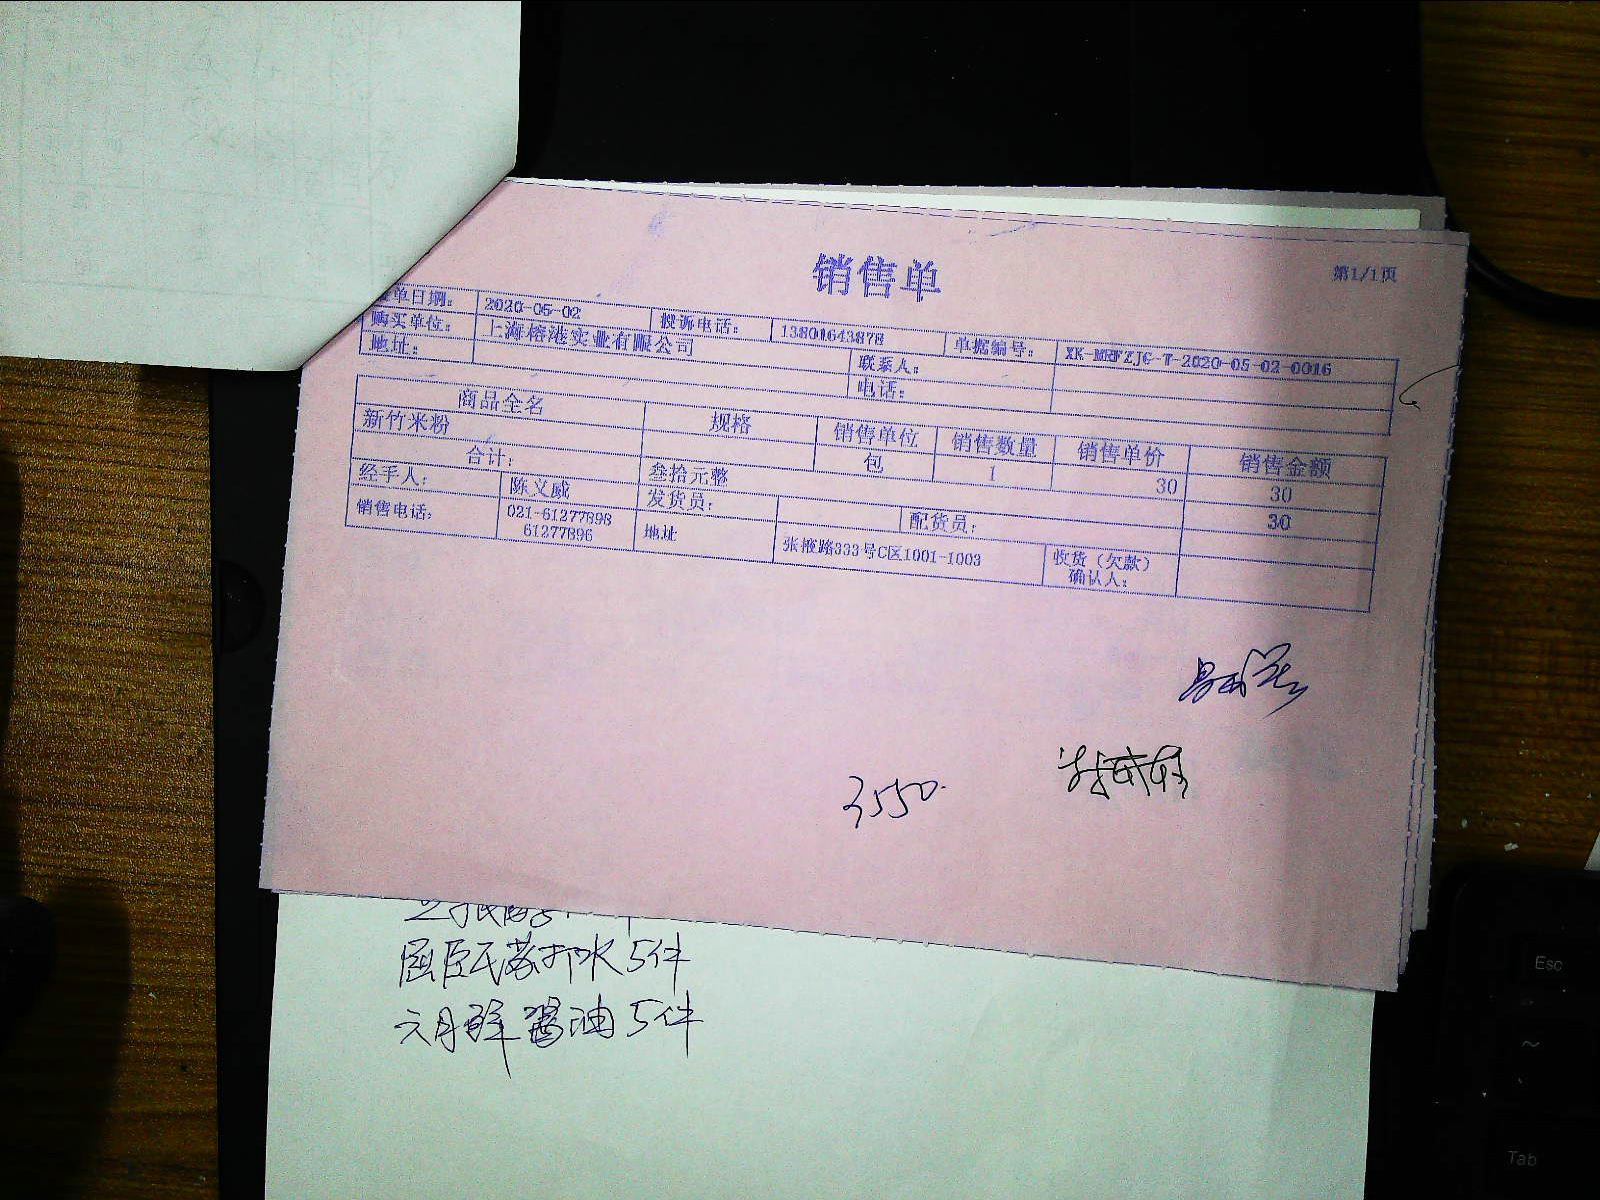 销售单
第1/1页
单日期： 2020-05-02 投诉电话： 13801643878 单据编号： XK-MRFZJG-T-2020-05-02-0016
购买单位： 上海榕港实业有限公司 联系人：
地址： 电话：
商品全名 规格 销售单位 销售数量 销售单价 销售金额
新竹米粉 包 1 30 30
合计： 叁拾元整 30
经手人： 陈义威 发货员： 配货员：
销售电话： 021-61277898 61277896 地址 张掖路333号C区1001-1003 收货（欠款）确认人：
3550
苏打水5件
六月鲜酱油5件